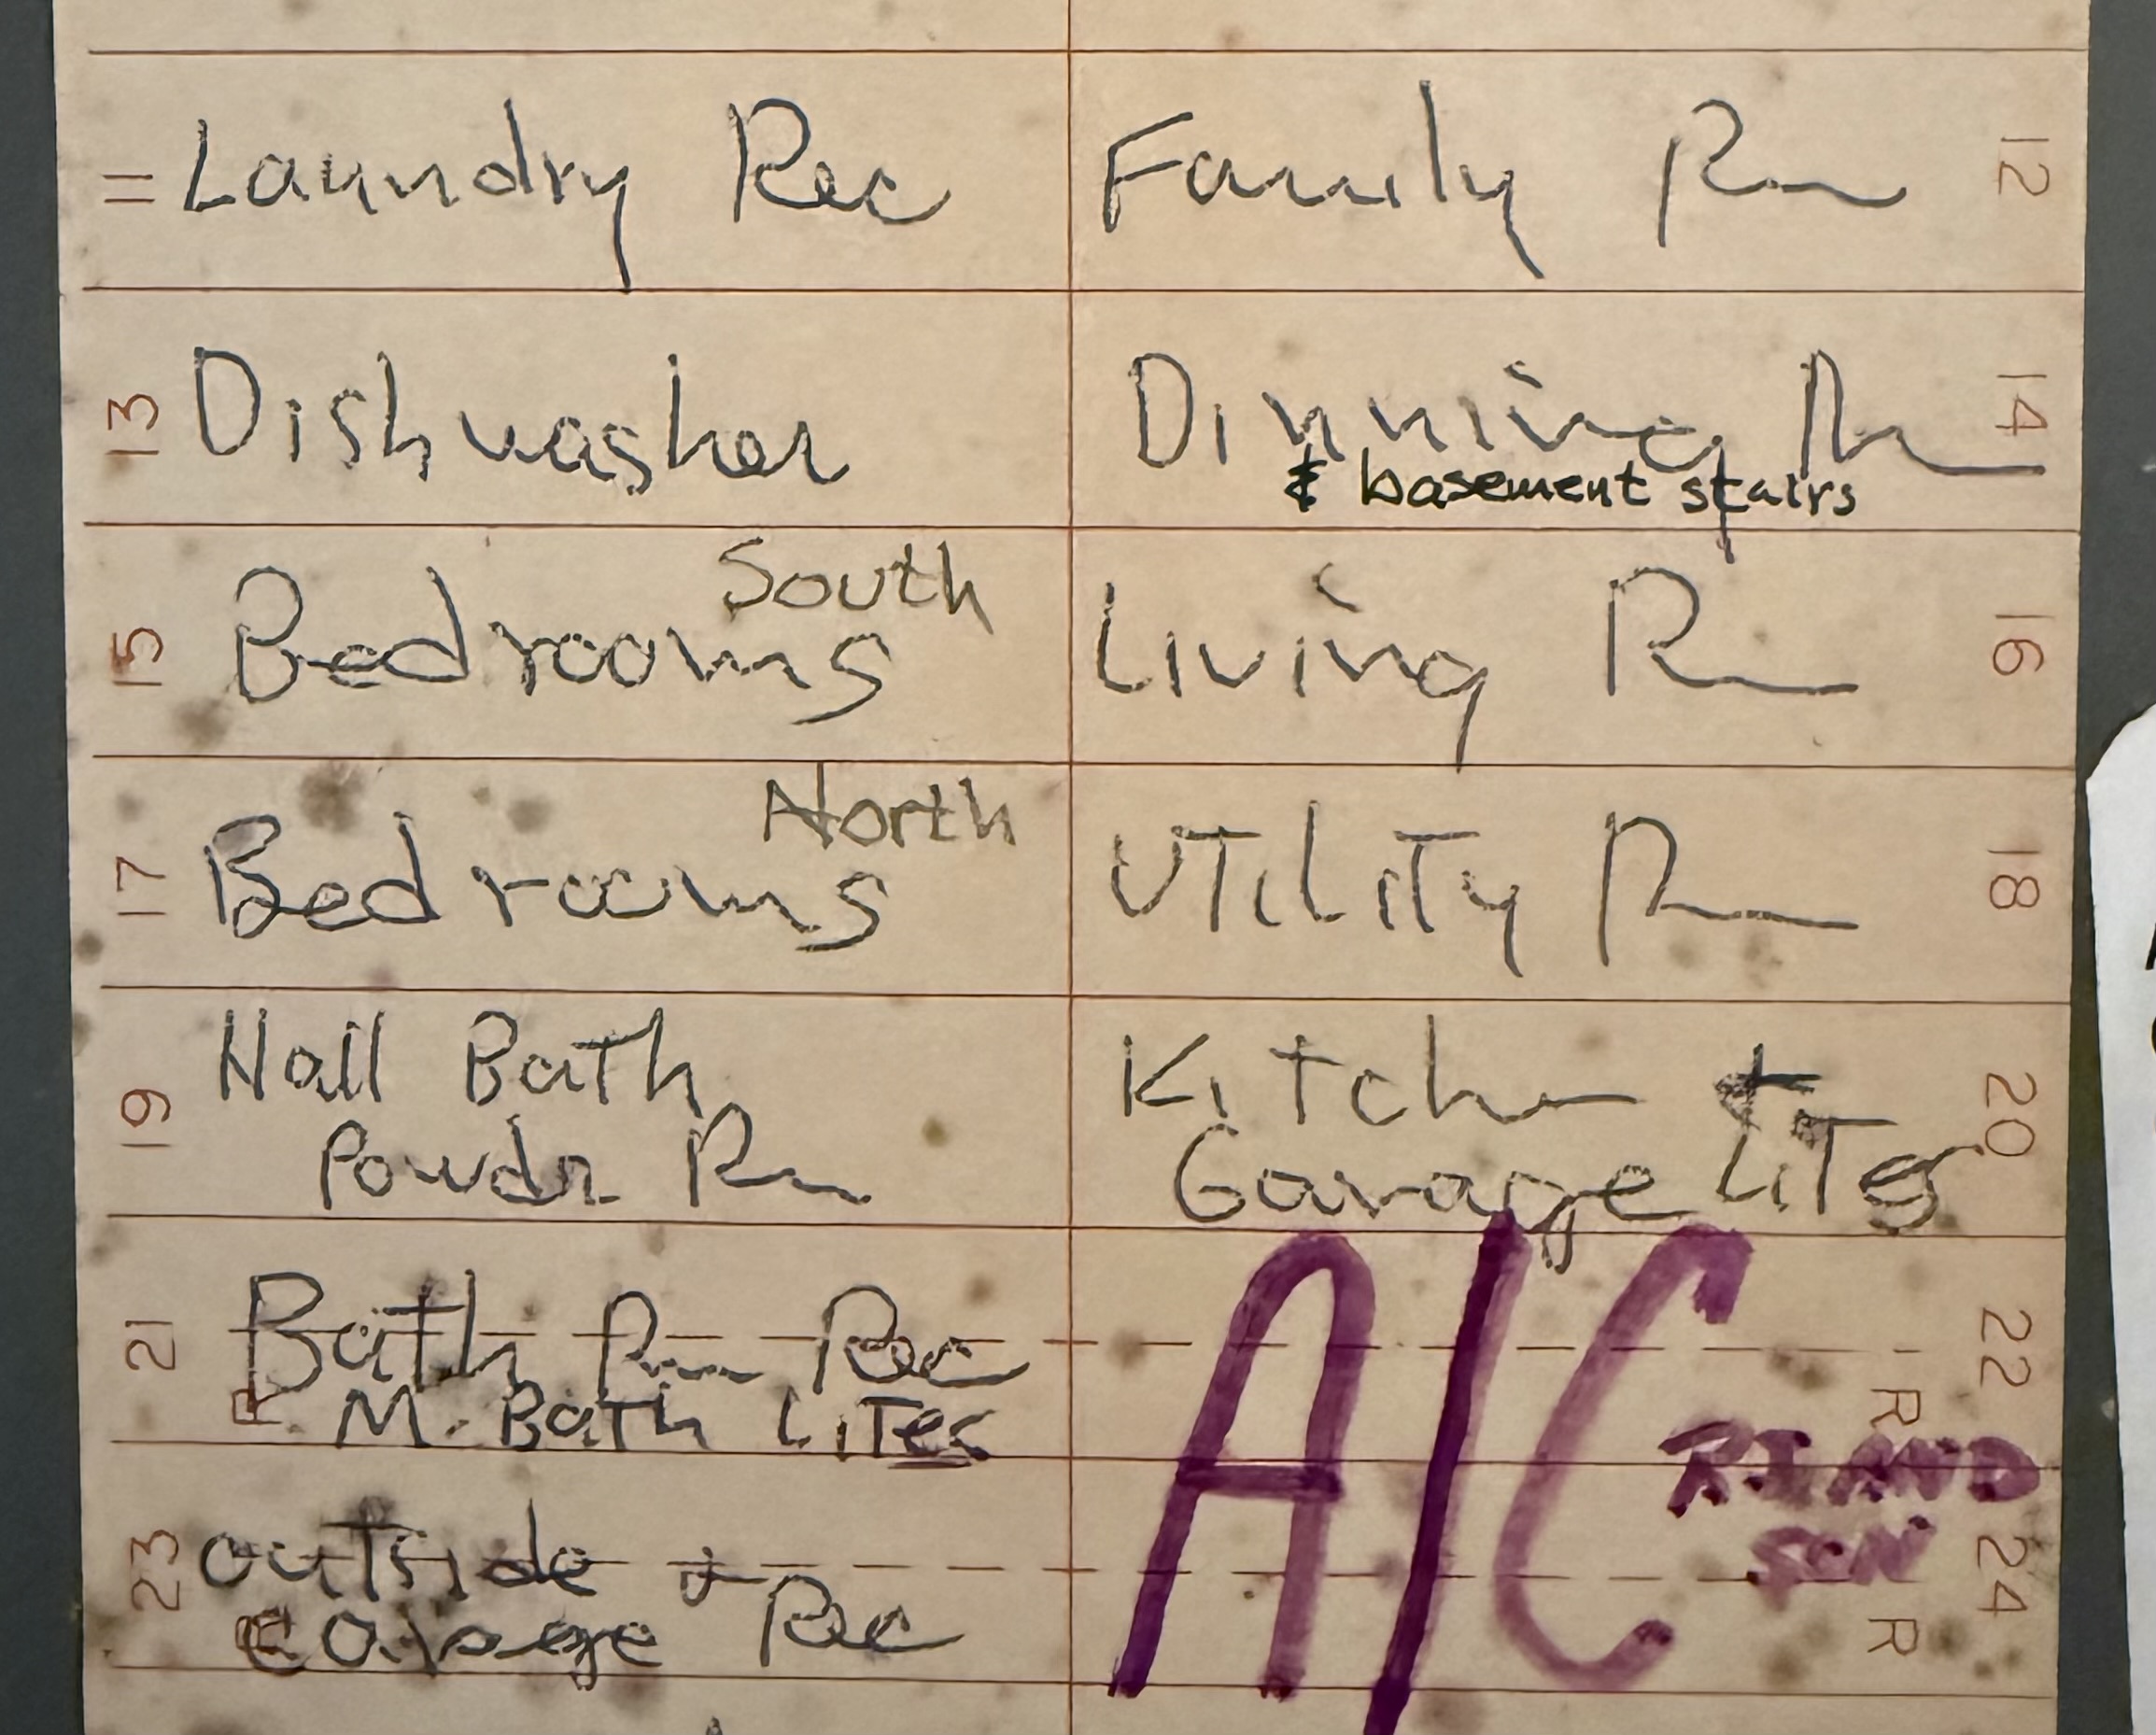 11 Laundry Rec
Family Rm 12
13 Dishwasher
Dinning Rm 14
& basement stairs
South
15 Bedrooms
Living Rm 16
North
17 Bedrooms
UTiLiTy Rm 18
19 Hall Bath
Powdr Rm
Kitchen +
Garage LiTes 20
21 Bath Rm Rec
R M. Bath LiTes
A/C 22
R
23 outside +
Garage Rec
24
R